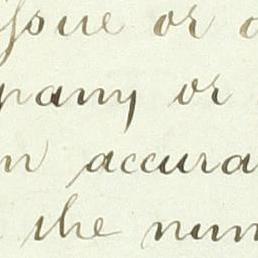 issue or
pany or
accura
the num